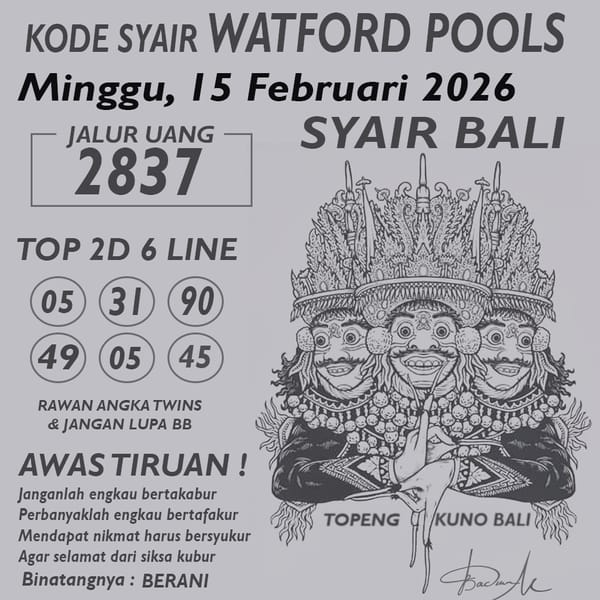 KODE SYAIR WATFORD POOLS
Minggu, 15 Februari 2026
JALUR UANG
2837
SYAIR BALI
TOP 2D 6 LINE
05 31 90
49 05 45
RAWAN ANGKA TWINS
& JANGAN LUPA BB
AWAS TIRUAN !
Janganlah engkau bertakabur
Perbanyaklah engkau bertafakur
Mendapat nikmat harus bersyukur
Agar selamat dari siksa kubur
Binatangnya : BERANI
TOPENG KUNO BALI